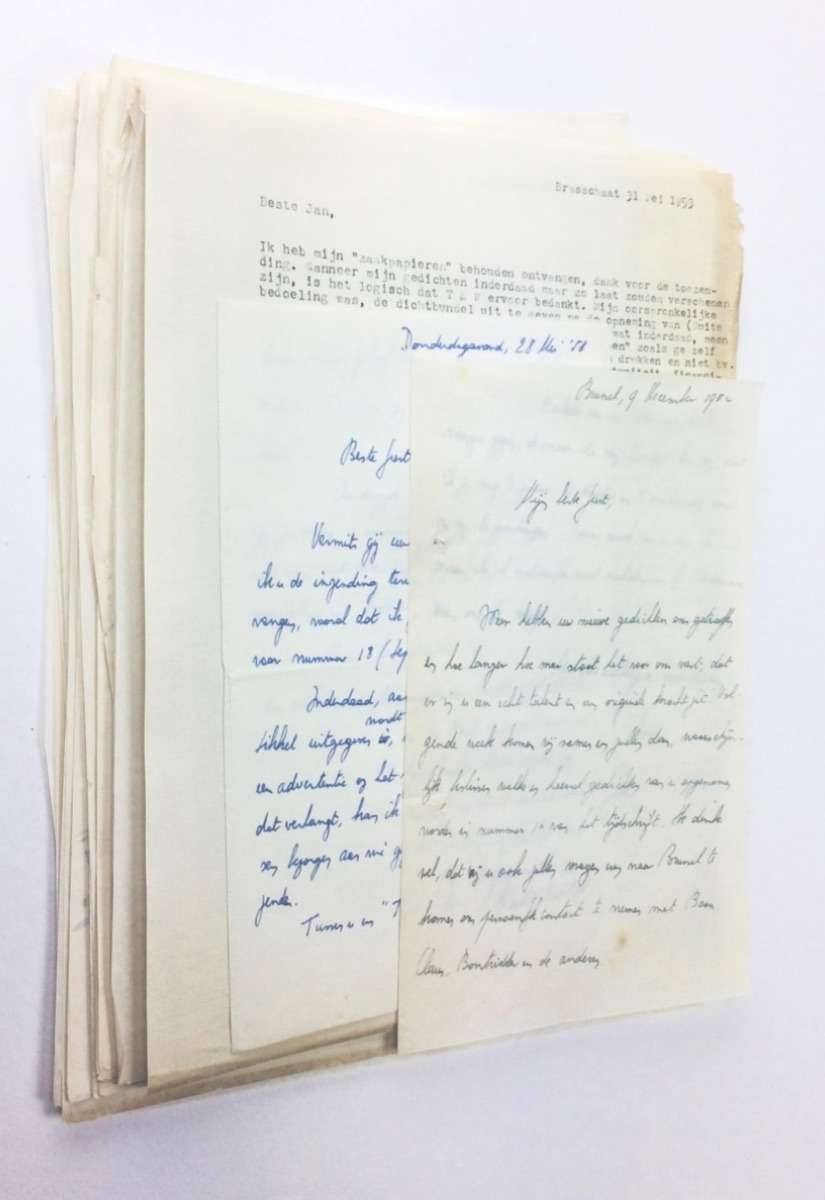 Brasschaat 31 Mei 1953
Beste Jan,
Ik heb mijn "zaakpapieren" behouden ontvangen, dank voor de toezen-
ding. Wanneer mijn gedichten inderdaad maar zo laat zouden verschenen
zijn, is het logisch dat T & M ervoor bedankt. Mijn oorspronkelijke
bedoeling was, de dichtbundel uit te geven na de opneming van (Suite
wat inderdaad, meen
en" zoals ge zelf
drukken en niet bv.
financi-
Donderdagavond, 28 Mei '53
Beste
Vermits gij
ik u de inzending
vangen, vooral dat ik
voor nummer 18 (Sep
Inderdaad,
wordt
Sikkel uitgegeven is,
een advertentie op het
dat verlangt, kan ik
bezorgen aan
Tussen u en "T
Brussel, 9 December 1952
Mijn beste
Weer hebben uw nieuwe gedichten ons getroffen
en hoe langer hoe meer staat het voor ons vast, dat
er in u een echt talent en een originele kracht zit. Vol-
gende week komen wij samen en zullen dan, waarschijn-
lijk, beslissen welke en hoeveel gedichten van u opgenomen
worden in nummer 14 van het tijdschrift. Ik denk
wel, dat wij u ook zullen vragen eens naar Brussel te
komen om persoonlijk contact te nemen met Boon,
Claus, Bontridder en de anderen